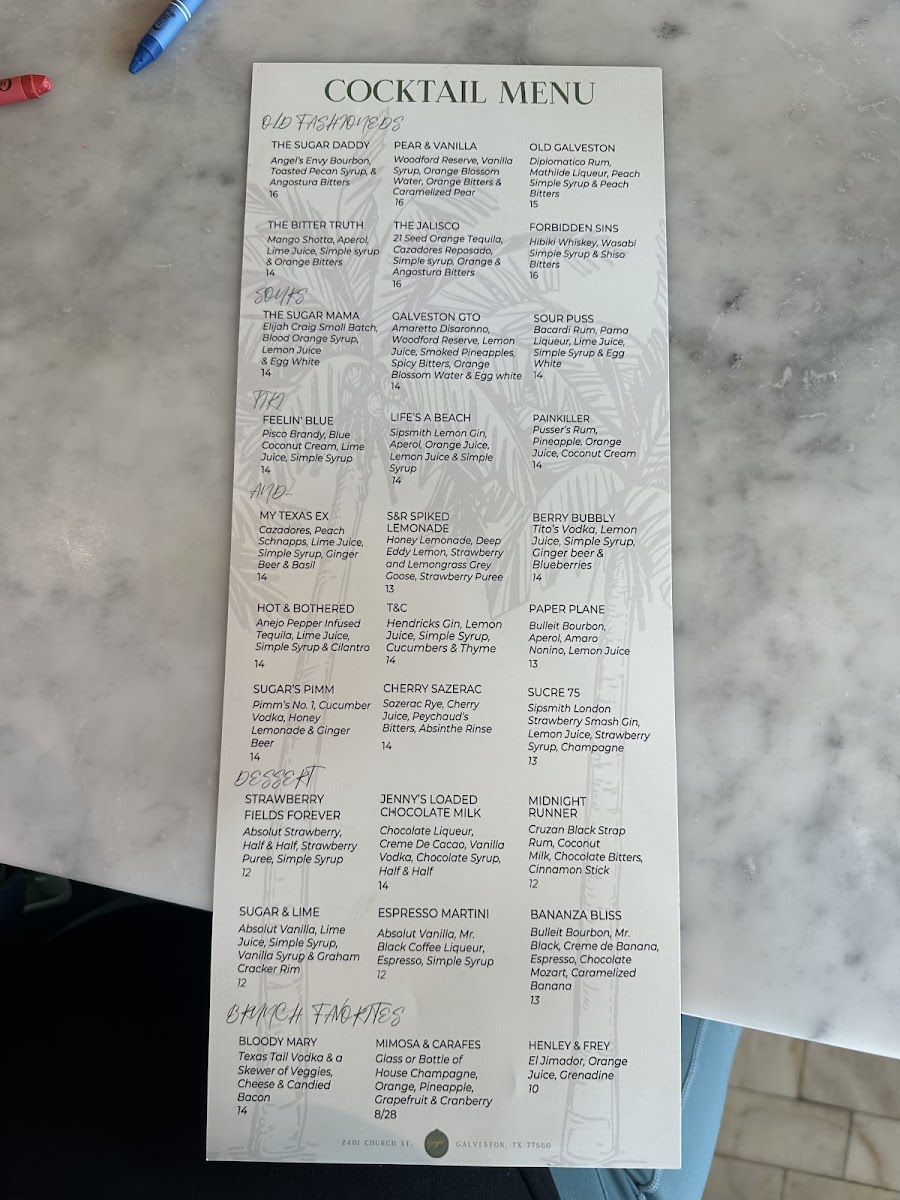 COCKTAIL MENU
OLD FASHIONEDS
THE SUGAR DADDY
Angel's Envy Bourbon,
Toasted Pecan Syrup, &
Angostura Bitters
16
PEAR & VANILLA
Woodford Reserve, Vanilla
Syrup, Orange Blossom
Water, Orange Bitters &
Caramelized Pear
16
OLD GALVESTON
Diplomatico Rum,
Mathilde Liqueur, Peach
Simple Syrup & Peach
Bitters
15
THE BITTER TRUTH
Mango Shotta, Aperol,
Lime Juice, Simple syrup
& Orange Bitters
14
THE JALISCO
21 Seed Orange Tequila,
Cazadores Reposado,
Simple syrup, Orange &
Angostura Bitters
16
FORBIDDEN SINS
Hibiki Whiskey, Wasabi
Simple Syrup & Shiso
Bitters
16
SOURS
THE SUGAR MAMA
Elijah Craig Small Batch,
Blood Orange Syrup,
Lemon Juice
& Egg White
14
GALVESTON GTO
Amaretto Disaronno,
Woodford Reserve, Lemon
Juice, Smoked Pineapples,
Spicy Bitters, Orange
Blossom Water & Egg white
14
SOUR PUSS
Bacardi Rum, Pama
Liqueur, Lime Juice,
Simple Syrup & Egg
White
14
TIKI
FEELIN' BLUE
Pisco Brandy, Blue
Coconut Cream, Lime
Juice, Simple Syrup
14
LIFE'S A BEACH
Sipsmith Lemon Gin,
Aperol, Orange Juice,
Lemon Juice & Simple
Syrup
14
PAINKILLER
Pusser's Rum,
Pineapple, Orange
Juice, Coconut Cream
14
AND...
MY TEXAS EX
Cazadores, Peach
Schnapps, Lime Juice,
Simple Syrup, Ginger
Beer & Basil
14
S&R SPIKED
LEMONADE
Honey Lemonade, Deep
Eddy Lemon, Strawberry
and Lemongrass Grey
Goose, Strawberry Puree
13
BERRY BUBBLY
Tito's Vodka, Lemon
Juice, Simple Syrup,
Ginger beer &
Blueberries
14
HOT & BOTHERED
Anejo Pepper Infused
Tequila, Lime Juice,
Simple Syrup & Cilantro
14
T&C
Hendricks Gin, Lemon
Juice, Simple Syrup,
Cucumbers & Thyme
14
PAPER PLANE
Bulleit Bourbon,
Aperol, Amaro
Nonino, Lemon Juice
13
SUGAR'S PIMM
Pimm's No. 1, Cucumber
Vodka, Honey
Lemonade & Ginger
Beer
14
CHERRY SAZERAC
Sazerac Rye, Cherry
Juice, Peychaud's
Bitters, Absinthe Rinse
14
SUCRE 75
Sipsmith London
Strawberry Smash Gin,
Lemon Juice, Strawberry
Syrup, Champagne
13
DESSERT
STRAWBERRY
FIELDS FOREVER
Absolut Strawberry,
Half & Half, Strawberry
Puree, Simple Syrup
12
JENNY'S LOADED
CHOCOLATE MILK
Chocolate Liqueur,
Creme De Cacao, Vanilla
Vodka, Chocolate Syrup,
Half & Half
14
MIDNIGHT
RUNNER
Cruzan Black Strap
Rum, Coconut
Milk, Chocolate Bitters,
Cinnamon Stick
12
SUGAR & LIME
Absolut Vanilla, Lime
Juice, Simple Syrup,
Vanilla Syrup & Graham
Cracker Rim
12
ESPRESSO MARTINI
Absolut Vanilla, Mr.
Black Coffee Liqueur,
Espresso, Simple Syrup
12
BANANZA BLISS
Bulleit Bourbon, Mr.
Black, Creme de Banana,
Espresso, Chocolate
Mozart, Caramelized
Banana
13
BRUNCH FAVORITES
BLOODY MARY
Texas Tail Vodka & a
Skewer of Veggies,
Cheese & Candied
Bacon
14
MIMOSA & CARAFES
Glass or Bottle of
House Champagne,
Orange, Pineapple,
Grapefruit & Cranberry
8/28
HENLEY & FREY
El Jimador, Orange
Juice, Grenadine
10
2401 CHURCH ST. GALVESTON, TX 77550